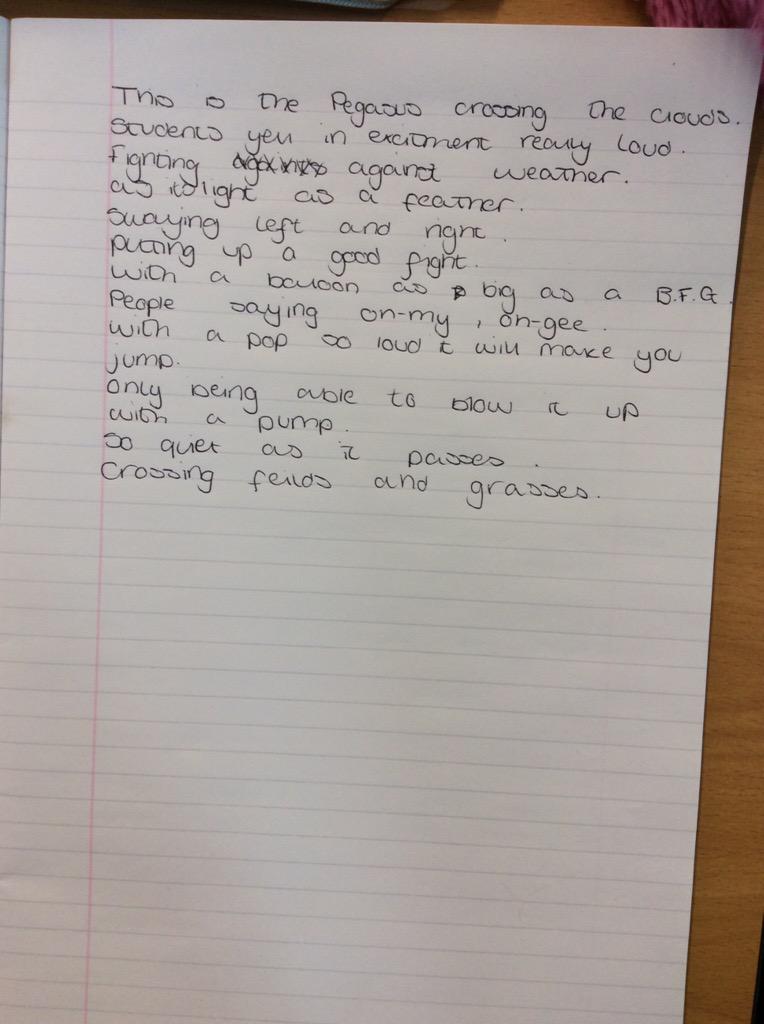 This is the Pegasus crossing the clouds.
Students yell in excitment really loud.
Fighting against weather.
as its light as a feather.
Swaying left and right.
putting up a good fight.
With a balloon as big as a B.F.G.
People saying oh-my, oh-gee.
with a pop so loud it will make you
jump.
Only being able to blow it up
with a pump.
So quiet as it passes.
Crossing feilds and grasses.